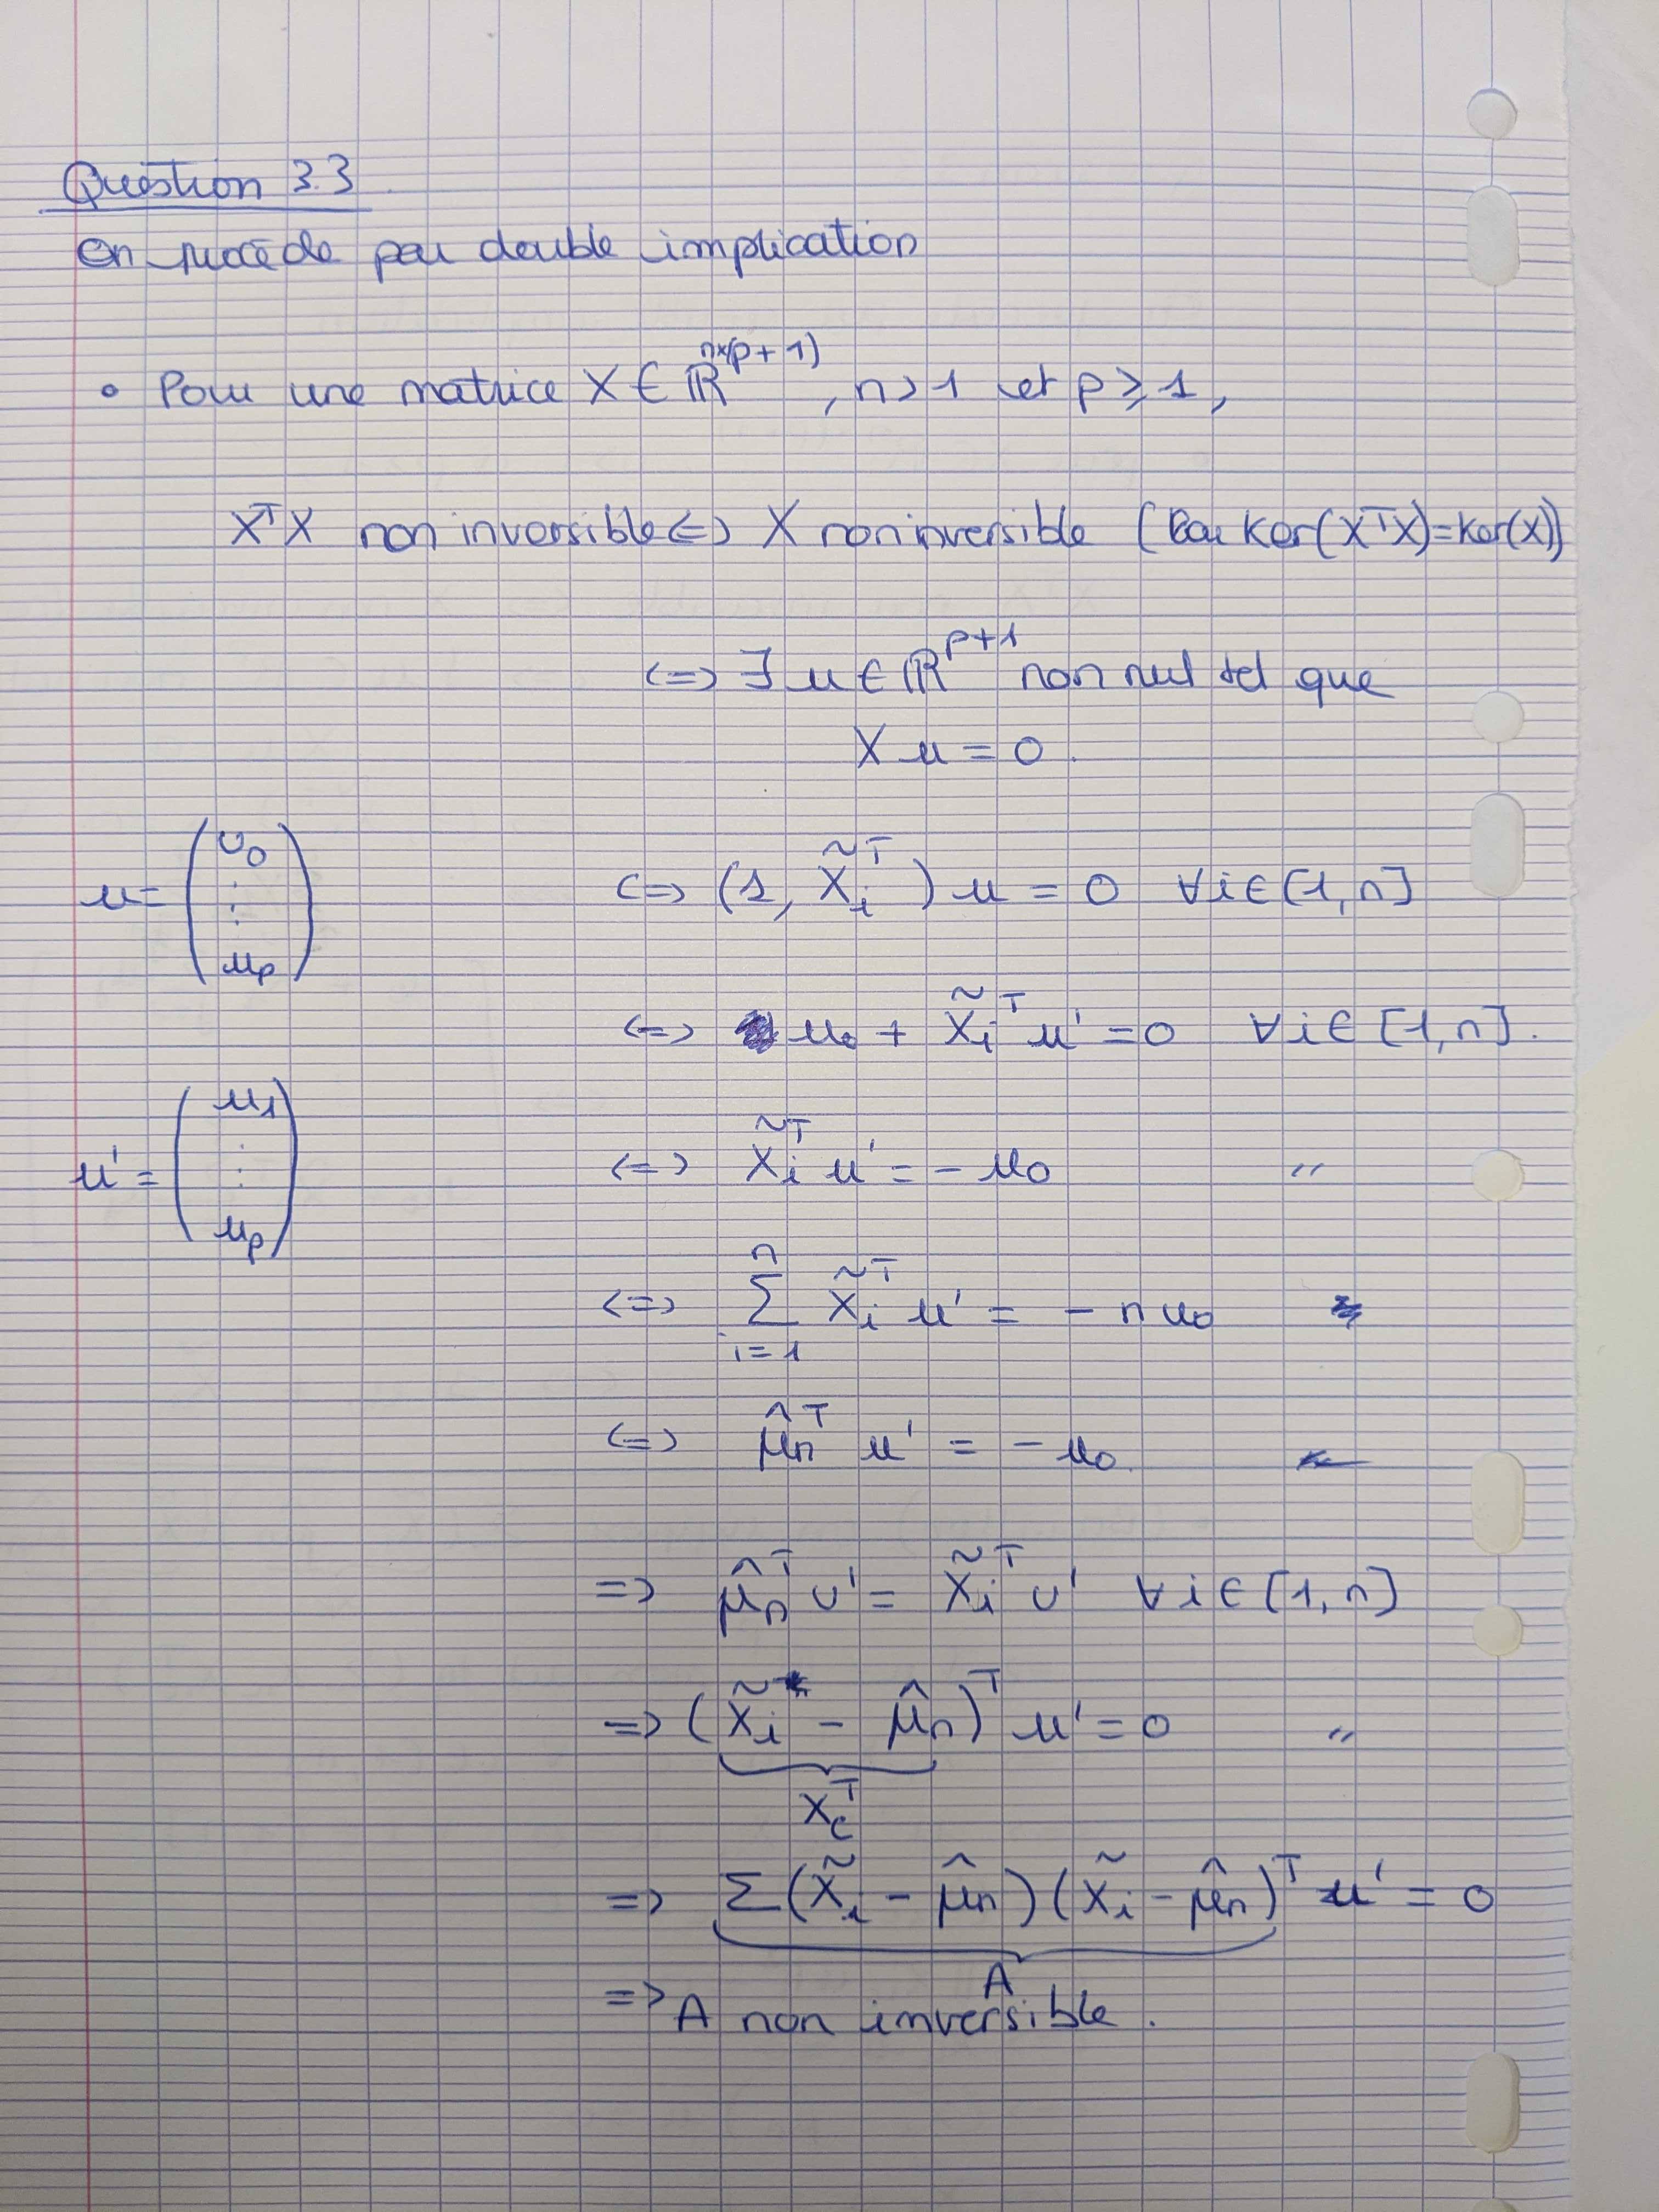 Question 3.3
On procède par double implication
• Pour une matrice X ∈ ℝ^{n×(p+1)}, n>1 et p⩾1,
XᵀX non inversible <=> X non inversible (Car Ker(XᵀX)=Ker(X))
<=> ∃ u ∈ ℝ^{p+1} non nul tel que
X u = 0.
u = (u₀ ⋮ u_p)   <=> (1, X̃ᵢᵀ) u = 0 ∀i∈[1,n]
<=> u₀ + X̃ᵢᵀ u' = 0 ∀i∈[1,n].
u' = (u₁ ⋮ u_p)   <=> X̃ᵢᵀ u' = - u₀ "
<=> Σ_{i=1}^{n} X̃ᵢᵀ u' = - n u₀
<=> μ̂ₙᵀ u' = - u₀.
=> μ̂ₙᵀ u' = X̃ᵢᵀ u' ∀i∈[1,n]
=> (X̃ᵢ - μ̂ₙ)ᵀ u' = 0 "
X_cᵀ
=> Σ(X̃ᵢ - μ̂ₙ)(X̃ᵢ - μ̂ₙ)ᵀ u' = 0
A
=> A non inversible.